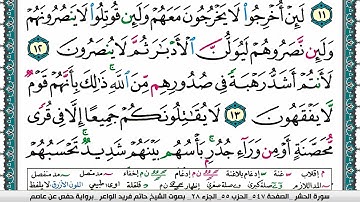 ١١ لَئِنْ أُخْرِجُوا۟ لَا يَخْرُجُونَ مَعَهُمْ وَلَئِن قُوتِلُوا۟ لَا يَنصُرُونَهُمْ
وَلَئِن نَّصَرُوهُمْ لَيُوَلُّنَّ ٱلْأَدْبَٰرَ ثُمَّ لَا يُنصَرُونَ ١٢
لَأَنتُمْ أَشَدُّ رَهْبَةً فِى صُدُورِهِم مِّنَ ٱللَّهِ ۚ ذَٰلِكَ بِأَنَّهُمْ قَوْمٌ
لَّا يَفْقَهُونَ ١٣ لَا يُقَٰتِلُونَكُمْ جَمِيعًا إِلَّا فِى قُرًى
مُّحَصَّنَةٍ أَوْ مِن وَرَآءِ جُدُرٍۭ ۚ بَأْسُهُم بَيْنَهُمْ شَدِيدٌ ۚ تَحْسَبُهُمْ
سورة الحشر الصفحة ٥٤٧ الحزب ٥٥ الجزء ٢٨ بصوت الشيخ حاتم فريد الواعر برواية حفص عن عاصم